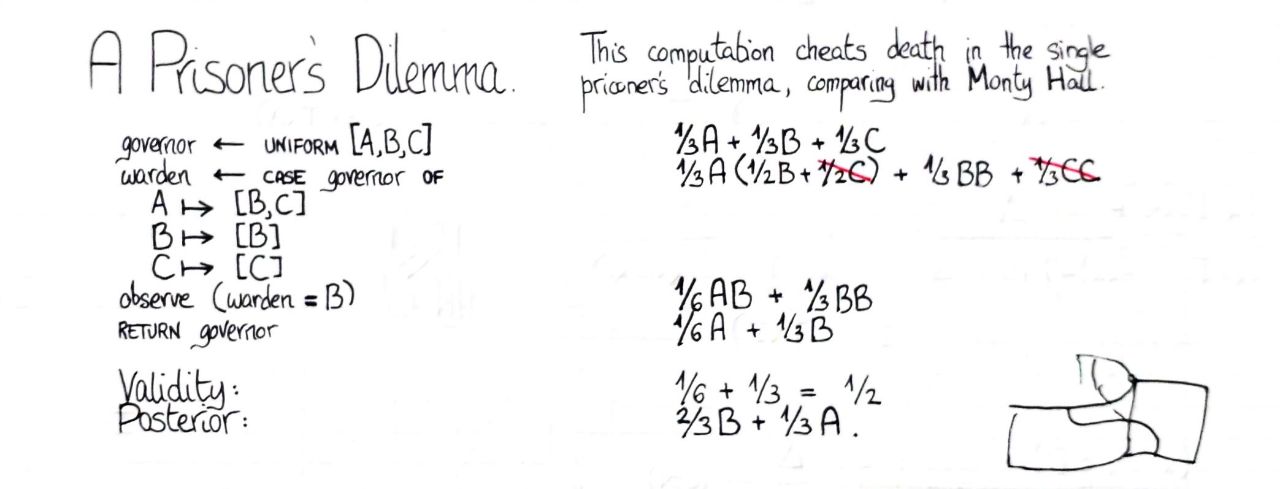 A Prisoner's Dilemma.
This computation cheats death in the single
prisoner's dilemma, comparing with Monty Hall.
governor ← UNIFORM [A,B,C]
warden ← CASE governor OF
A ↦ [B,C]
B ↦ [B]
C ↦ [C]
observe (warden = B)
RETURN governor
Validity:
Posterior:
1/3A + 1/3B + 1/3C
1/3A (1/2B + 1/2C) + 1/3 BB + 1/3CC
1/6 AB + 1/3BB
1/6 A + 1/3B
1/6 + 1/3 = 1/2
2/3B + 1/3A.